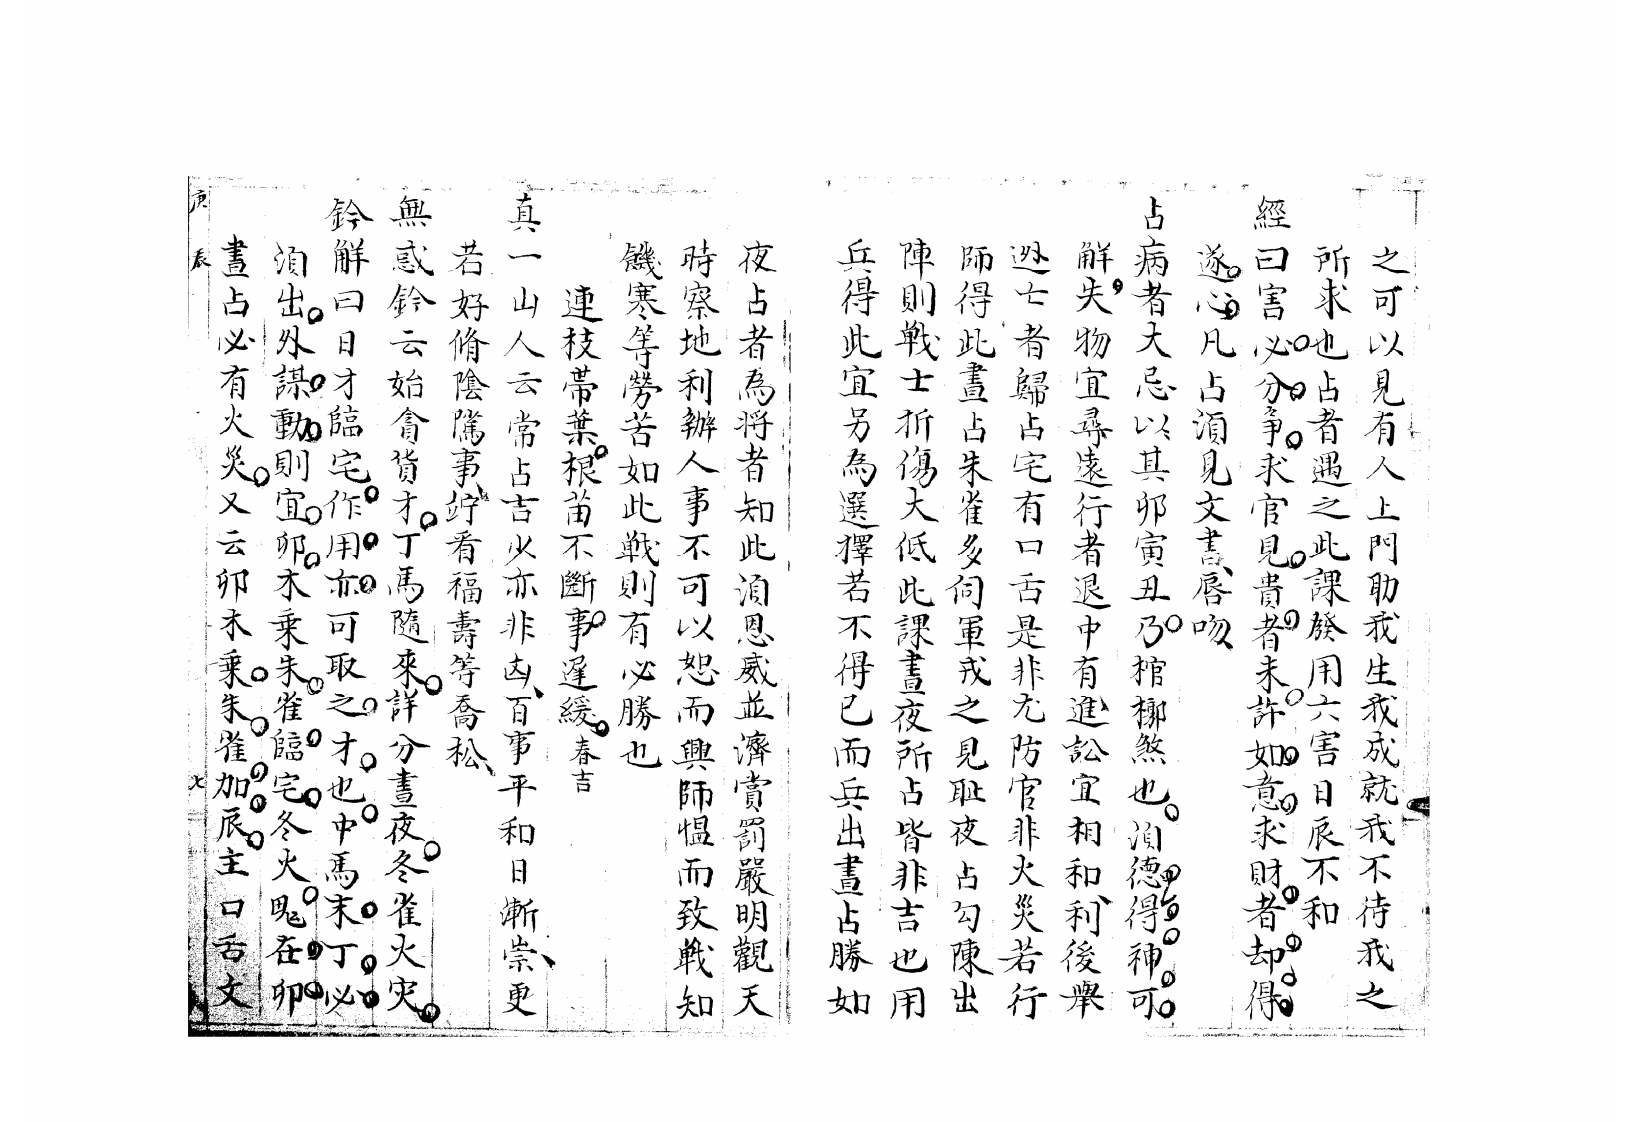 之可以見有人上門助我生我成就我不待我之
所求也占者遇之此課發用六害日辰不和
經曰害必分爭求官見貴者未許如意求財者却得
遂心凡占須見文書唇吻
占病者大忌以其卯寅丑乃棺槨煞也須德得神可
解失物宜尋遠行者退中有進訟宜相和利後舉
迯亡者歸占宅有口舌是非尤防官非火災若行
師得此晝占朱雀多伺軍戎之見耻夜占勾陳出
陣則戰士折傷大低此課晝夜所占皆非吉也用
兵得此宜另為選擇若不得已而兵出晝占勝如
夜占者為將者知此須恩威並濟賞罰嚴明觀天
時察地利辦人事不可以恕而興師愠而致戰知
饑寒等勞苦如此戰則有必勝也
連枝蒂葉根苗不斷事遲緩春吉
真一山人云常占吉少亦非凶百事平和日漸崇更
若好脩陰隲事竚看福壽等喬松
無惑鈐云始貪貨才丁馬隨來詳分晝夜冬雀火灾
鈐解曰日才臨宅作用亦可取之才也中馬末丁必
須出外謀動則宜卯木乗朱雀臨宅冬火鬼在卯
晝占必有火災又云卯木乗朱雀加辰主口舌文
庚辰 七